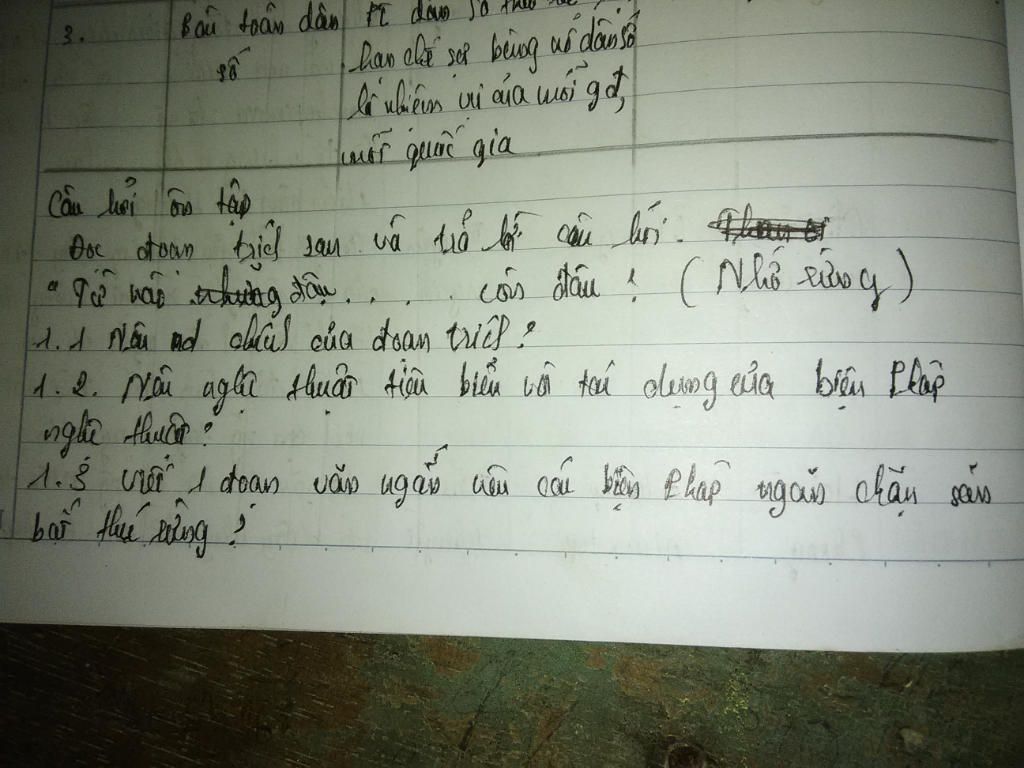 3. Bài toán dân
số
hạn chế sự bùng nổ dân số
là nhiệm vụ của mỗi gđ,
mỗi quốc gia
Câu hỏi ôn tập
Đọc đoạn trích sau và trả lời câu hỏi.
" Từ nào đâu . . . . còn đâu ! ( Nhớ rừng )
1.1 Nêu nd chính của đoạn trích ?
1.2. Nêu nghệ thuật tiêu biểu và tác dụng của biện pháp
nghệ thuật ?
1.3 Viết 1 đoạn văn ngắn nêu các biện pháp ngăn chặn săn
bắt thú rừng ?